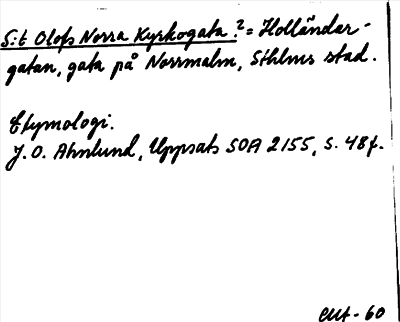 S:t Olofs Norra Kyrkogata ? = Holländar-
gatan, gata på Norrmalm, Sthlms stad.
Etymologi.
J. O. Ahnlund, Uppsats SOA 2155, s. 48f.
- 60